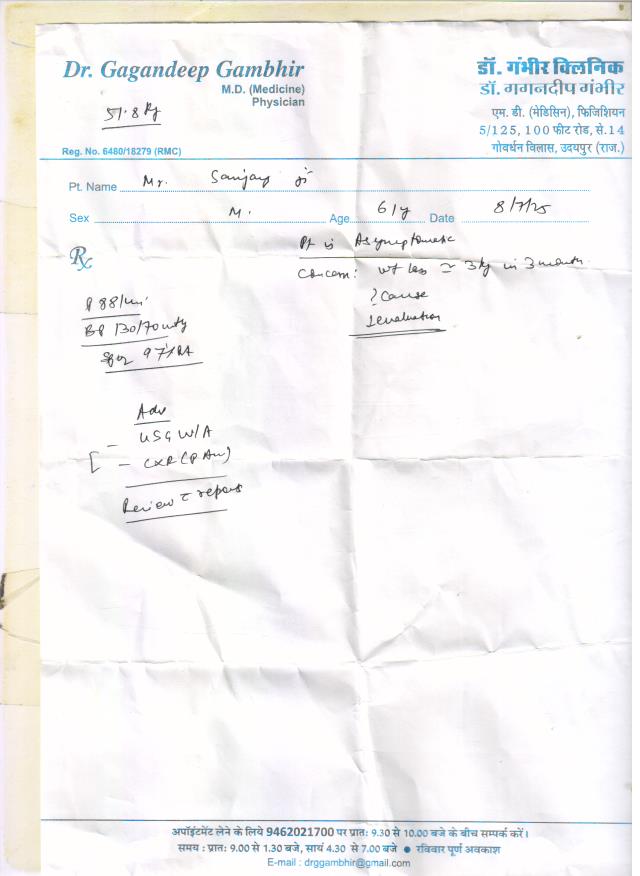 Dr. Gagandeep Gambhir
M.D. (Medicine)
Physician
51.8 kg
Reg. No. 6480/18279 (RMC)
डॉ. गंभीर क्लिनिक
डॉ. गगनदीप गंभीर
एम. डी. (मेडिसिन), फिजिशियन
5/125, 100 फीट रोड, से.14
गोवर्धन विलास, उदयपुर (राज.)
Pt. Name Mr. Sanjay ji
Sex M. Age 61y Date 8/7/25
Rx
Pt is Asymptomatic
Concern: wt loss ≃ 3kg in 3 month
? Cause
? evaluation
P 88/min
BP 130/70 mmHg
SpO2 97% RA
Adv
- USG W/A
- CXR (PA)
Review c reports
अपॉइंटमेंट लेने के लिये 9462021700 पर प्रातः 9.30 से 10.00 बजे के बीच सम्पर्क करें।
समय : प्रातः 9.00 से 1.30 बजे, सायं 4.30 से 7.00 बजे ● रविवार पूर्ण अवकाश
E-mail : drggambhir@gmail.com